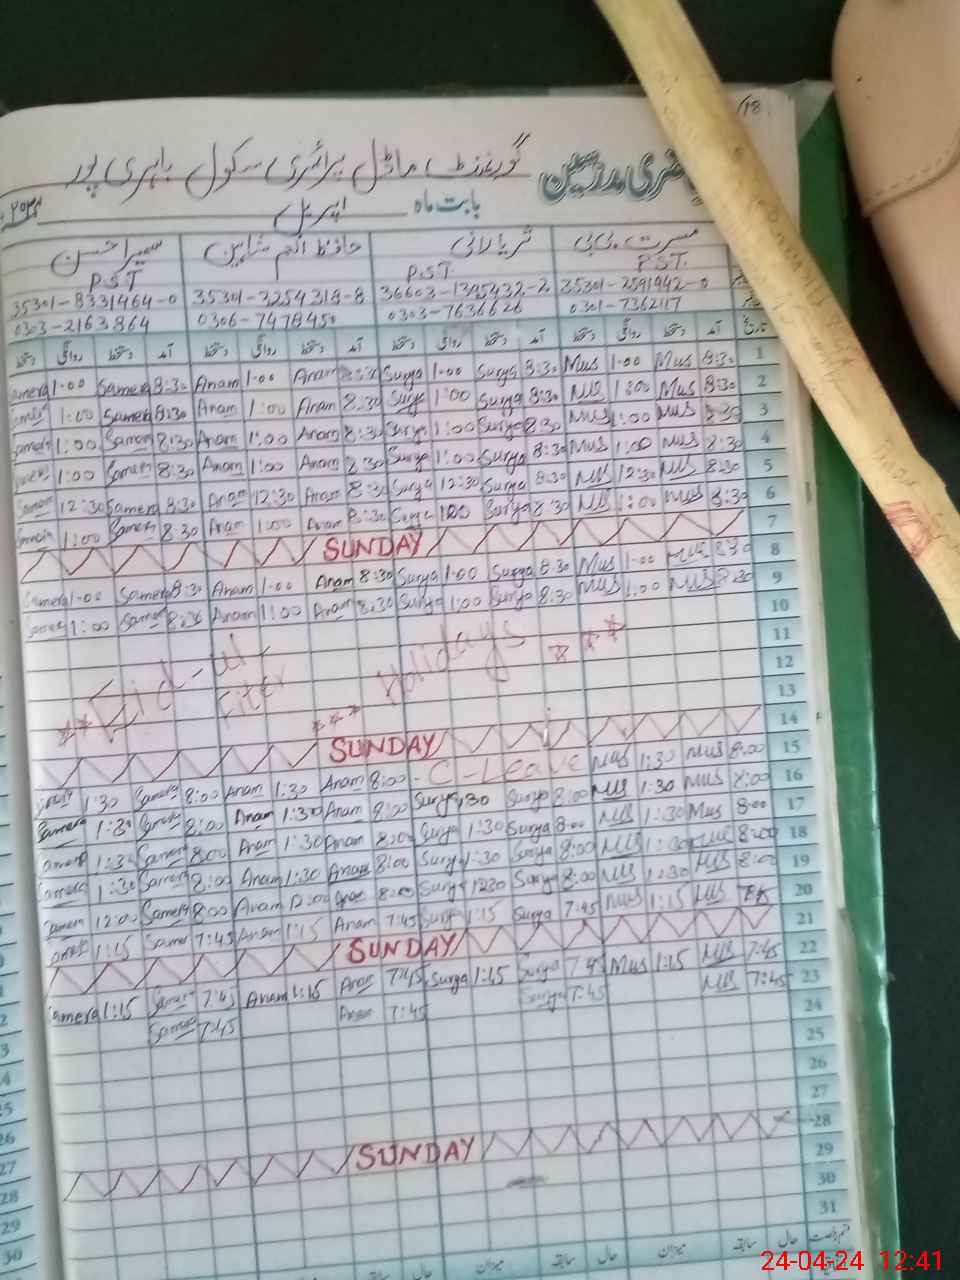 18
گورنمنٹ ماڈل پرائمری سکول باہری پور
بابت ماہ اپریل
مسرت بی بی ثریا لانی حافظ انعم شاہین سمیرا حسن
P.S.T P.S.T. P.S.T
35301-8331464-0 35301-3254318-8 35301-2591942-0
0303-2163864 0306-7478450 0303-7636626 0301-7362117
تاریخ آمد دستخط روانگی دستخط آمد دستخط روانگی دستخط آمد دستخط روانگی دستخط آمد دستخط روانگی دستخط
Samera 1.00 Samera 8:30 Anam 1.00 Anam 8:30 Surya 1.00 Surya 8:30 Mus 1.00 Mus 8:30 1
1:00 Samera 8:30 Anam 1:00 Anam 8:30 Surya 1:00 Surya 8:30 Mus 1:00 Mus 8:30 2
1:00 Samera 8:30 Anam 1:00 Anam 8:30 Surya 1:00 Surya 8:30 Mus 1:00 Mus 8:30 3
1:00 Samera 8:30 Anam 1:00 Anam 8:30 Surya 1:00 Surya 8:30 Mus 1:00 Mus 8:30 4
12:30 Samera 8:30 Anam 12:30 Anam 8:30 Surya 12:30 Surya 8:30 Mus 12:30 Mus 8:30 5
1:00 Samera 8:30 Anam 1:00 Anam 8:30 Surya 1:00 Surya 8:30 Mus 1:00 Mus 8:30 6
SUNDAY 7
Samera 1.00 Samera 8:30 Anam 1.00 Anam 8:30 Surya 1.00 Surya 8:30 Mus 1.00 Mus 8:30 8
1:00 Samera 8:30 Anam 1:00 Anam 8:30 Surya 1:00 Surya 8:30 Mus 1:00 Mus 8:30 9
10
**Eid-ul Fiter *** Holidays *** 11
12
13
SUNDAY 14
1:30 Samera 8:00 Anam 1:30 Anam 8:00 - C-Leave Mus 1:30 Mus 8:00 15
Samera 1:30 Samera 8:00 Anam 1:30 Anam 8:00 Surya 1:30 Surya 8:00 Mus 1:30 Mus 8:00 16
Samera 1:30 Samera 8:00 Anam 1:30 Anam 8:00 Surya 1:30 Surya 8:00 Mus 1:30 Mus 8:00 17
Samera 1:30 Samera 8:00 Anam 1:30 Anam 8:00 Surya 1:30 Surya 8:00 Mus 1:30 Mus 8:00 18
Samera 12:00 Samera 8:00 Anam 12:00 Anam 8:00 Surya 1230 Surya 8:00 Mus 1:30 Mus 8:00 19
1:15 Samera 7:45 Anam 1:15 Anam 7:45 Surya 1:15 Surya 7:45 Mus 1:15 Mus 7:45 20
SUNDAY 21
Samera 1:15 Samera 7:45 Anam 1:15 Anam 7:45 Surya 1:15 Surya 7:45 Mus 1:15 Mus 7:45 22
Samera 7:45 Anam 7:45 Surya 7:45 Mus 7:45 23
24
25
26
27
SUNDAY 28
29
30
31
حال سابقہ میزان حال سابقہ میزان حال سابقہ
24-04-24 12:41